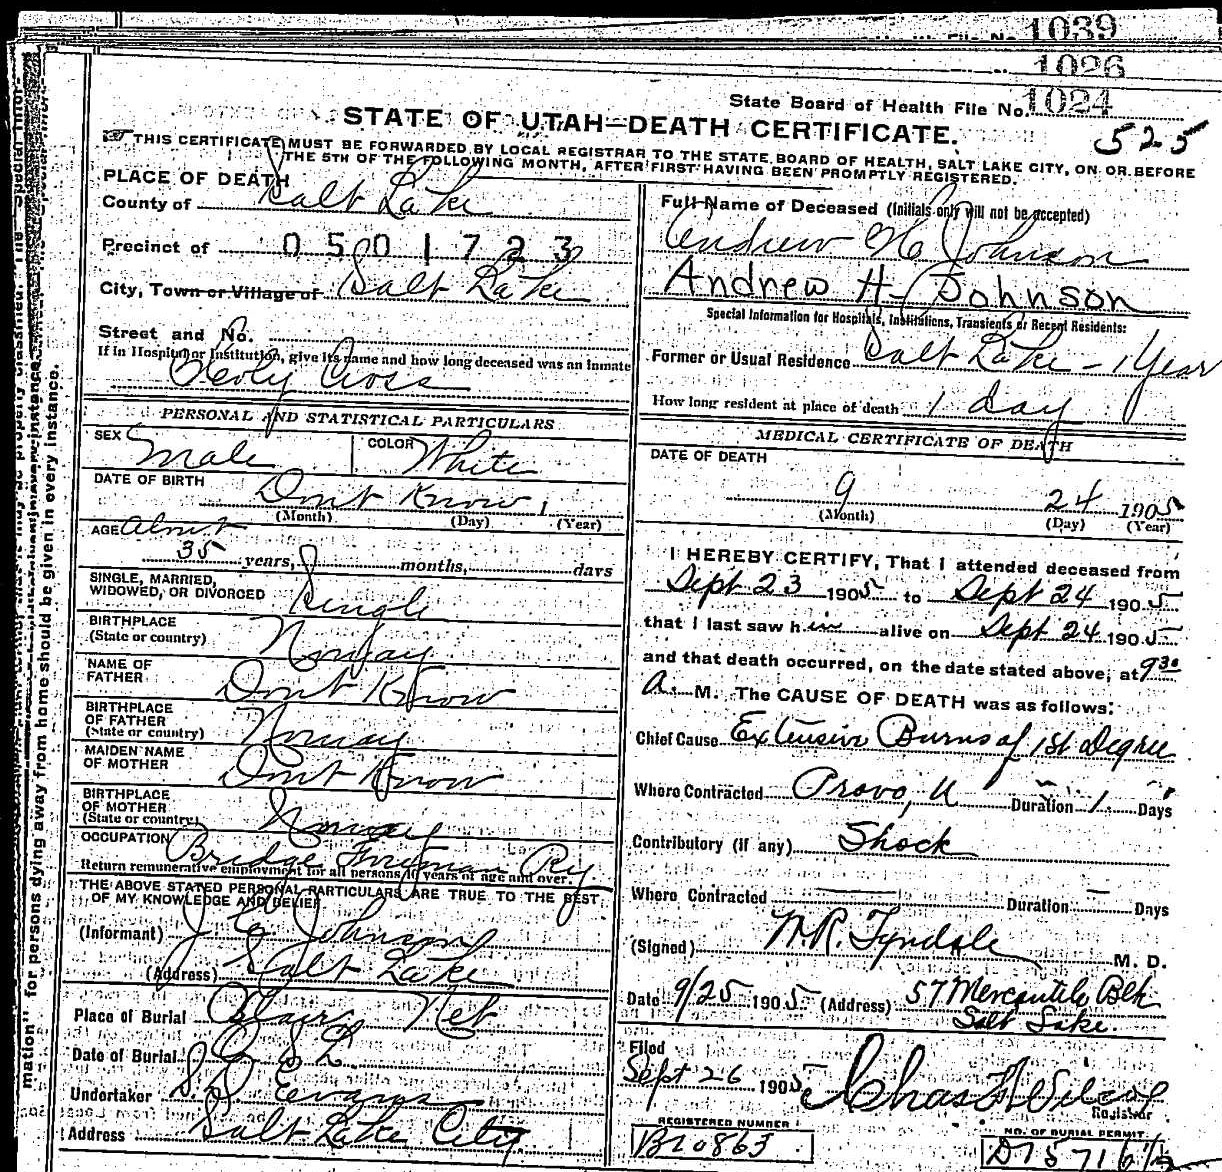 1039
1026
State Board of Health File No. 1024
STATE OF UTAH—DEATH CERTIFICATE.
525
THIS CERTIFICATE MUST BE FORWARDED BY LOCAL REGISTRAR TO THE STATE BOARD OF HEALTH, SALT LAKE CITY, ON OR BEFORE
THE 5TH OF THE FOLLOWING MONTH, AFTER FIRST HAVING BEEN PROMPTLY REGISTERED.
PLACE OF DEATH
County of Salt Lake
Precinct of 0501723
City, Town or Village of Salt Lake
Street and No.
If in Hospital or Institution, give its name and how long deceased was an inmate
Holy Cross
PERSONAL AND STATISTICAL PARTICULARS
SEX Male COLOR White
DATE OF BIRTH Dont Know 1
(Month) (Day) (Year)
AGE About
35 years, months, days
SINGLE, MARRIED,
WIDOWED, OR DIVORCED Single
BIRTHPLACE
(State or country) Norway
NAME OF
FATHER Dont Know
BIRTHPLACE
OF FATHER
(State or country) Norway
MAIDEN NAME
OF MOTHER Dont Know
BIRTHPLACE
OF MOTHER
(State or country) Norway
OCCUPATION Bridge Foreman Ry
Return remunerative employment for all persons 10 years of age and over.
THE ABOVE STATED PERSONAL PARTICULARS ARE TRUE TO THE BEST
OF MY KNOWLEDGE AND BELIEF
(Informant) J C Johnson
(Address) Salt Lake
Place of Burial Blair Neb
Date of Burial
Undertaker S. D. Evans
Address Salt Lake City
Full Name of Deceased (Initials only will not be accepted)
Andrew H Johnson
Andrew H. Johnson
Special Information for Hospitals, Institutions, Transients or Recent Residents:
Former or Usual Residence Salt Lake - 1 Year
How long resident at place of death 1 day
MEDICAL CERTIFICATE OF DEATH
DATE OF DEATH
9 24 1905
(Month) (Day) (Year)
I HEREBY CERTIFY, That I attended deceased from
Sept 23 1905 to Sept 24 1905
that I last saw him alive on Sept 24 1905
and that death occurred, on the date stated above, at 9 30
A. M. The CAUSE OF DEATH was as follows:
Chief Cause Extensive Burns of 1st Degree
Where Contracted Provo, U Duration 1 Days
Contributory (if any) Shock
Where Contracted — Duration — Days
(Signed) W.R. Tyndale M. D.
Date 9/25 1905 (Address) 57 Mercantile Blk
Salt Lake.
Filed
Sept 26 1905 Chas F Wilcox
Registrar
REGISTERED NUMBER
B20863
NO. OF BURIAL PERMIT
mation" for persons dying away from home should be given in every instance.